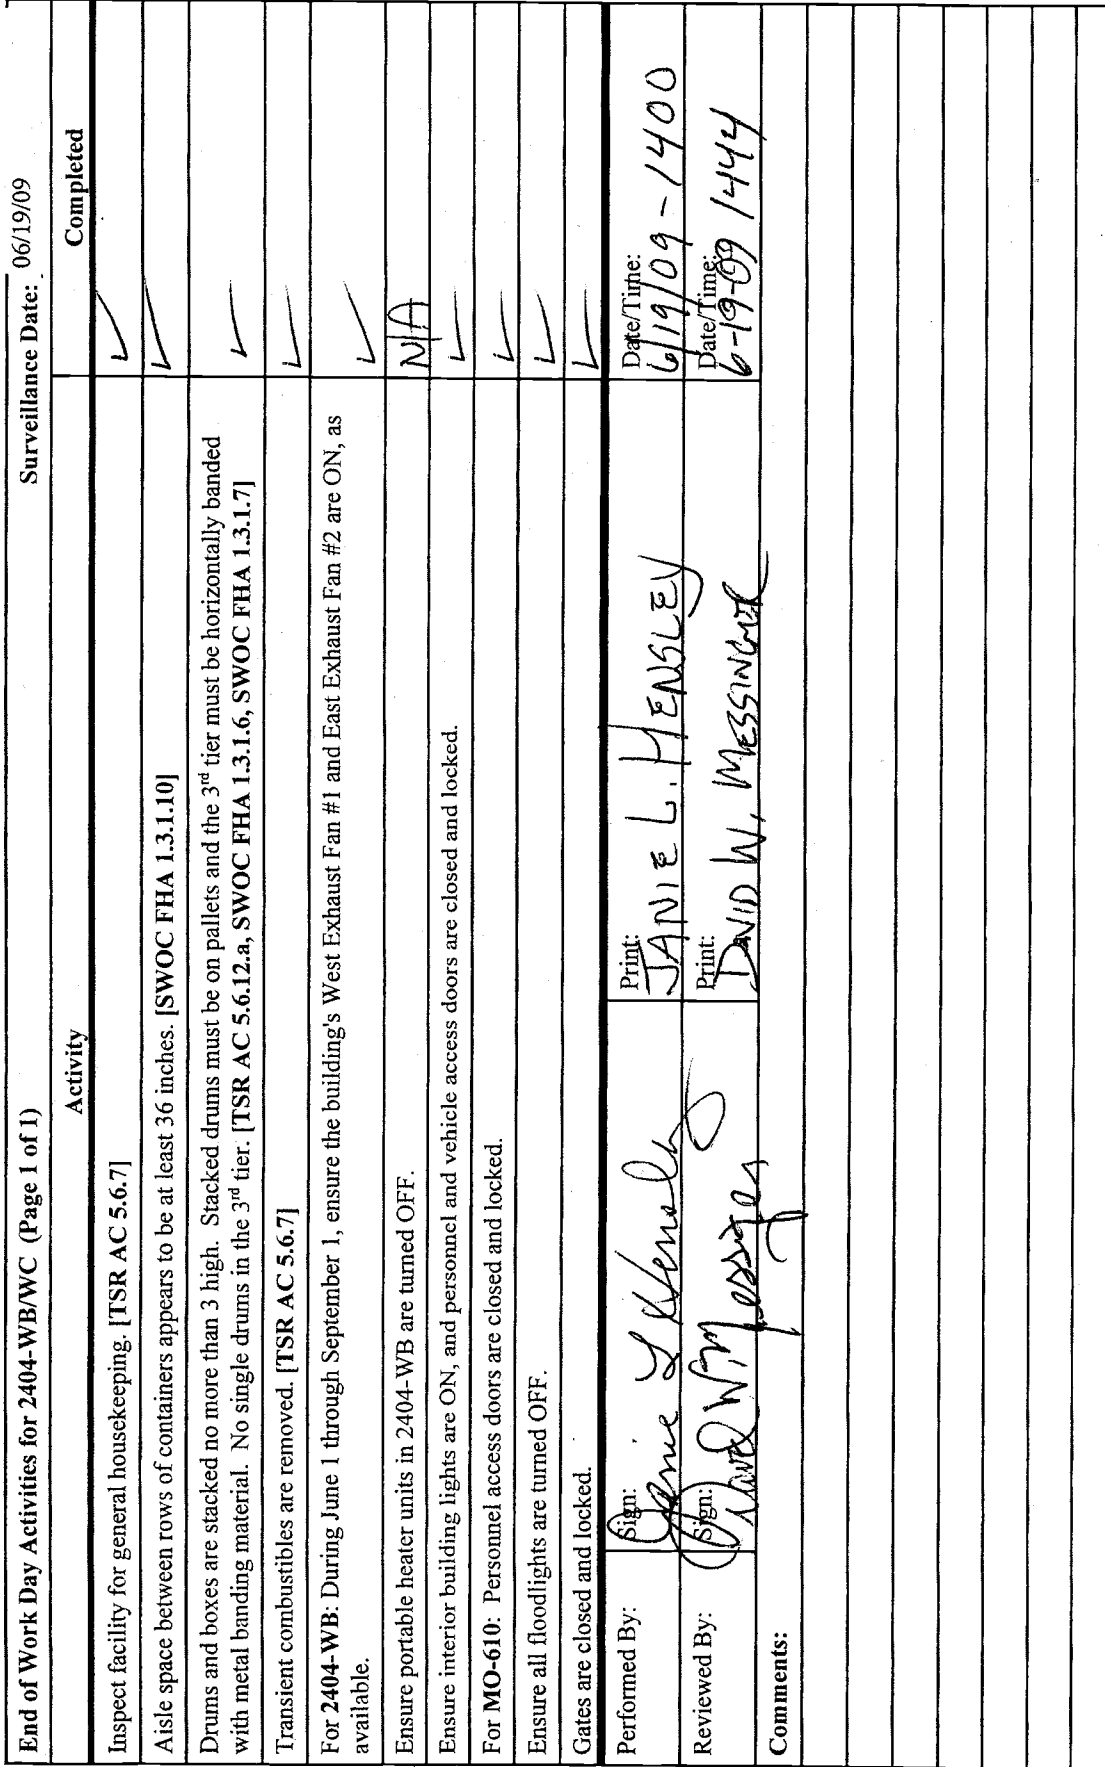 End of Work Day Activities for 2404-WB/WC (Page 1 of 1) Surveillance Date: 06/19/09
Activity Completed
Inspect facility for general housekeeping. [TSR AC 5.6.7] ✓
Aisle space between rows of containers appears to be at least 36 inches. [SWOC FHA 1.3.1.10] ✓
Drums and boxes are stacked no more than 3 high. Stacked drums must be on pallets and the 3rd tier must be horizontally banded
with metal banding material. No single drums in the 3rd tier. [TSR AC 5.6.12.a, SWOC FHA 1.3.1.6, SWOC FHA 1.3.1.7] ✓
Transient combustibles are removed. [TSR AC 5.6.7] ✓
For 2404-WB: During June 1 through September 1, ensure the building's West Exhaust Fan #1 and East Exhaust Fan #2 are ON, as
available. ✓
Ensure portable heater units in 2404-WB are turned OFF. N/A
Ensure interior building lights are ON, and personnel and vehicle access doors are closed and locked. ✓
For MO-610: Personnel access doors are closed and locked. ✓
Ensure all floodlights are turned OFF. ✓
Gates are closed and locked. ✓
Performed By: Sign: Janie L Hensley Print: JANIE L. HENSLEY Date/Time: 6/19/09 - 1400
Reviewed By: Sign: David W. Messinger Print: DAVID W. MESSINGER Date/Time: 6-19-09 1444
Comments: